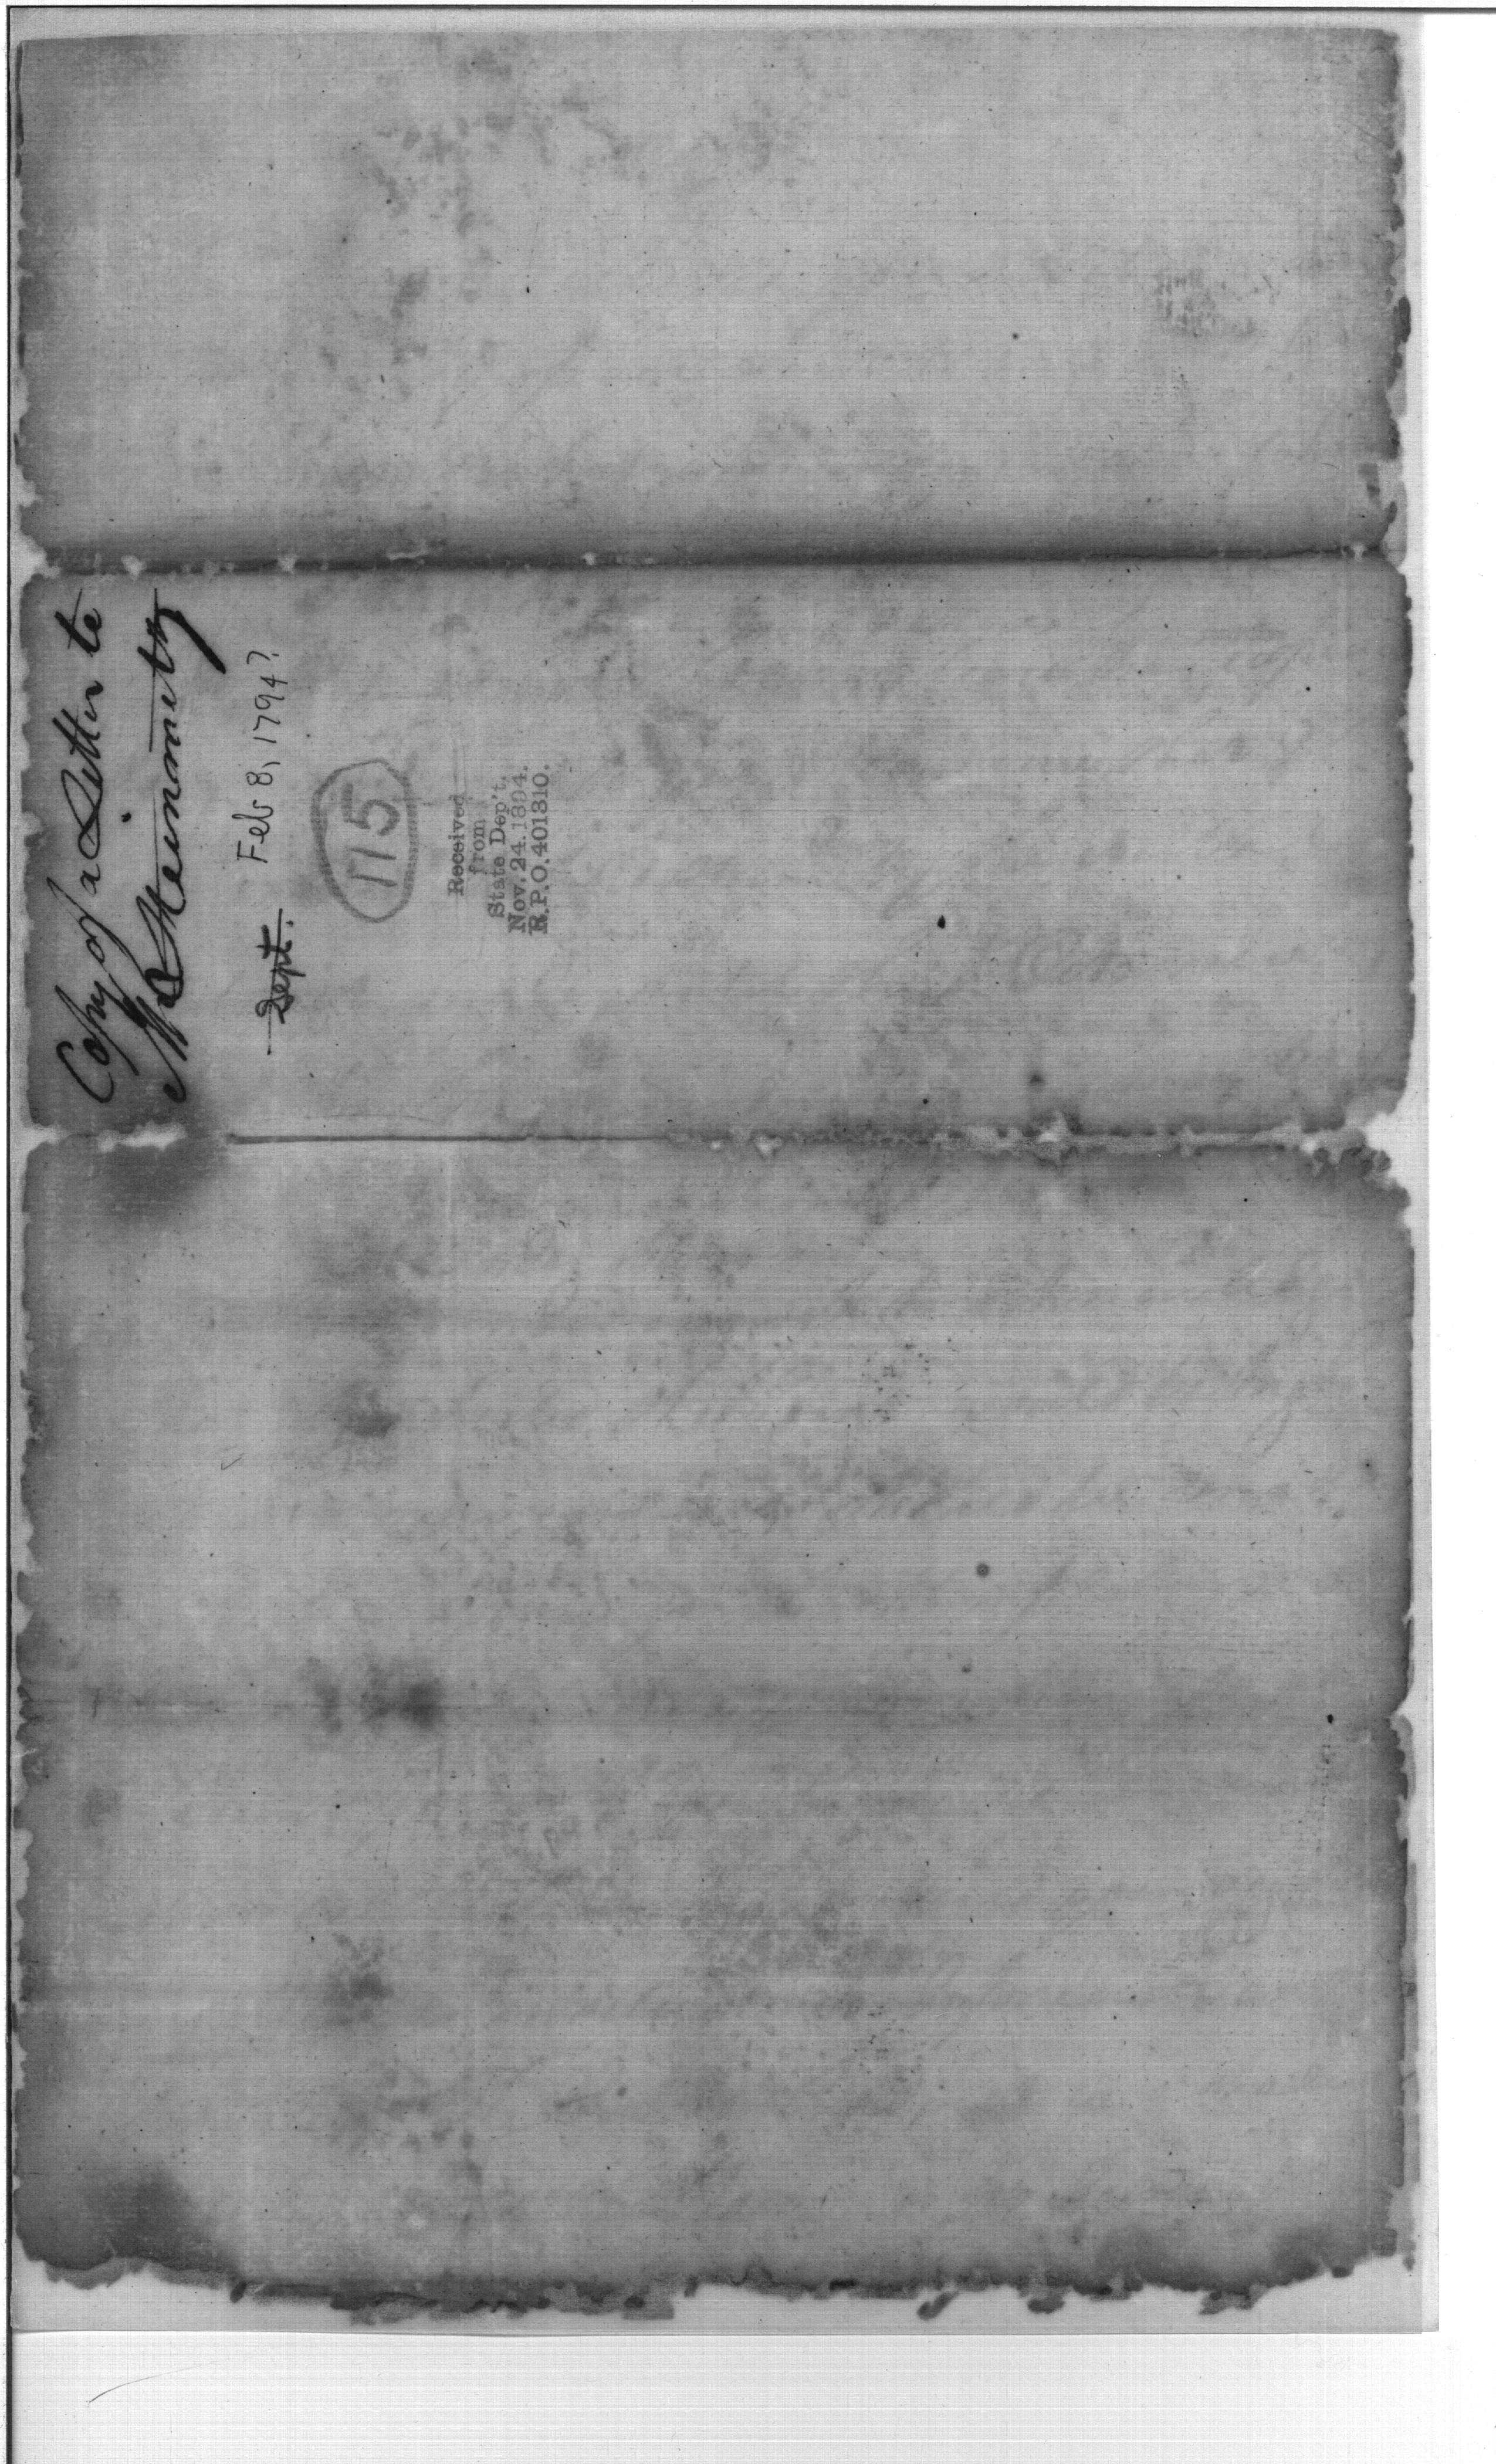 Copy of a Letter to
Feb 8, 1794?
Sept.
175
Received
from
State Dep't.
Nov. 24. 1894.
R.P.O. 401310.